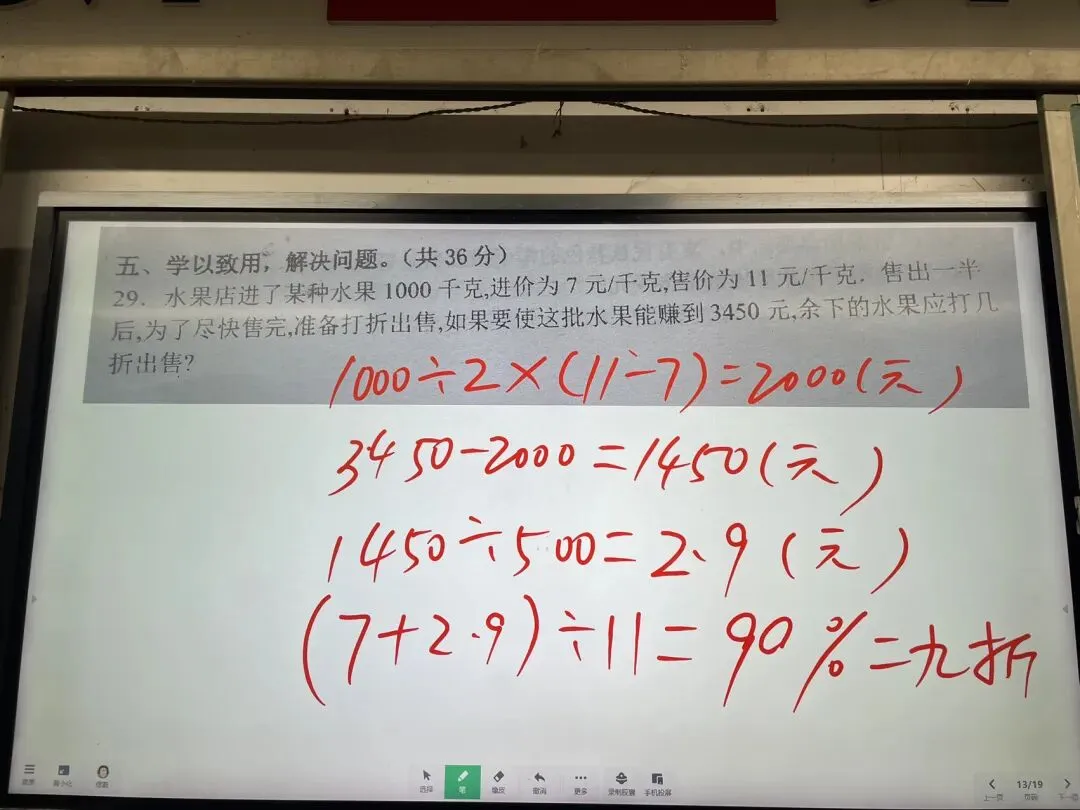 五、学以致用，解决问题。（共 36 分）
29．水果店进了某种水果 1000 千克,进价为 7 元/千克,售价为 11 元/千克．售出一半
后,为了尽快售完,准备打折出售,如果要使这批水果能赚到 3450 元,余下的水果应打几
折出售?
1000÷2×(11-7)=2000(元)
3450-2000=1450(元)
1450÷500=2.9(元)
(7+2.9)÷11=90%=九折
选择 笔 橡皮 撤消 更多 录制胶囊 手机投屏
13/19
上一页 页码 下一页